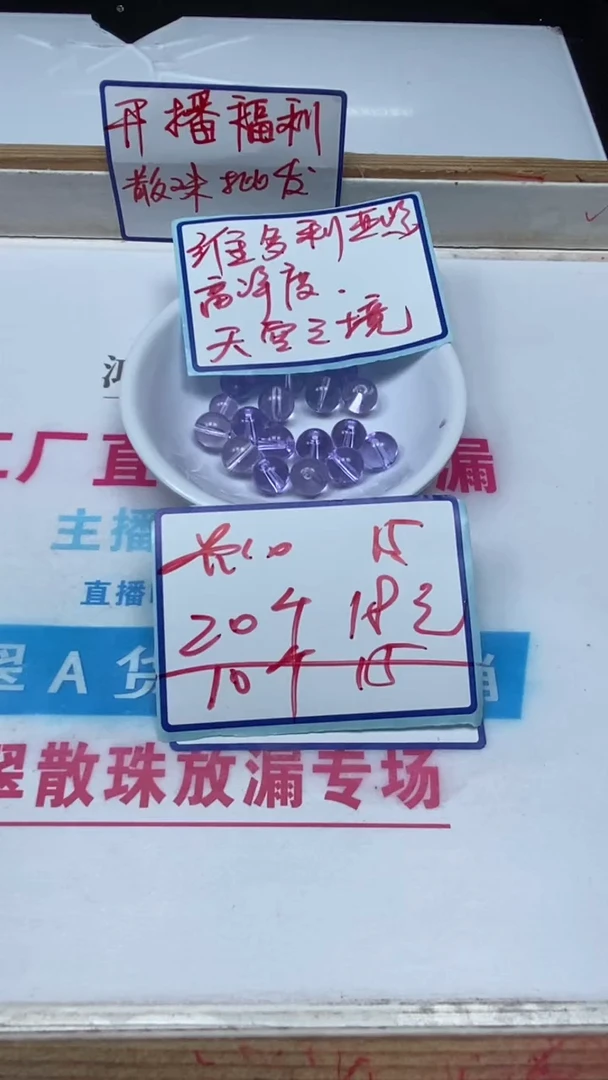 开播福利
散珠批发
维多利亚紫
高净度.
天空之境
工厂直
漏
主播
直播
15
20个 18元
10个 15
翠A货
翠散珠放漏专场